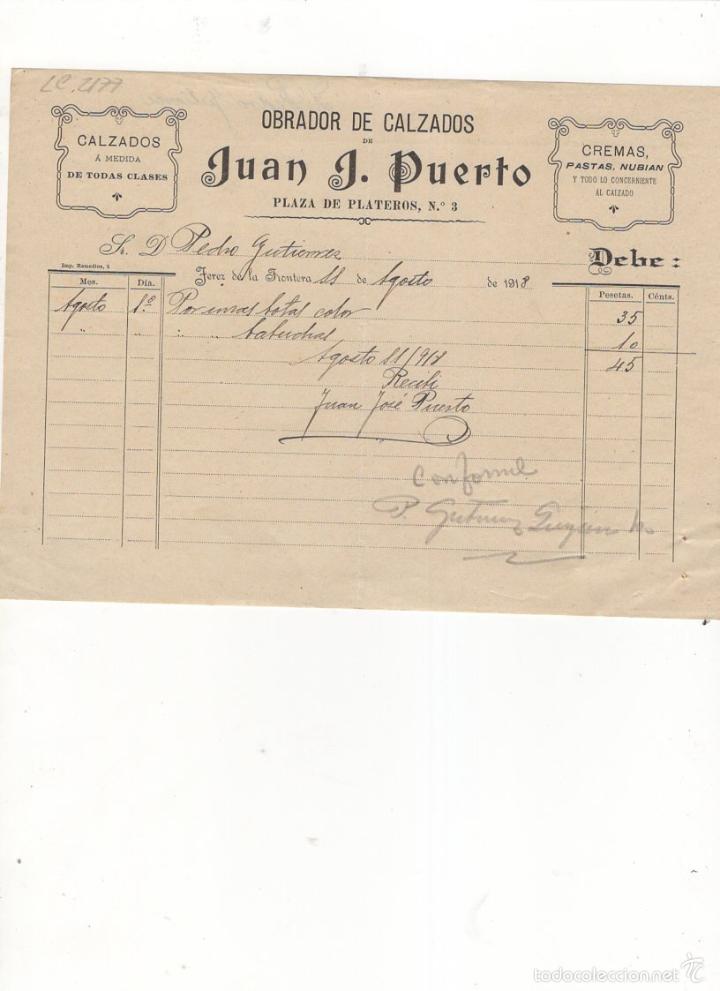 LC. 2177
OBRADOR DE CALZADOS
DE
Juan J. Puerto
PLAZA DE PLATEROS, N.º 3
CALZADOS
Á MEDIDA
DE TODAS CLASES
CREMAS,
PASTAS, NUBIAN
Y TODO LO CONCERNIENTE
AL CALZADO
Sr. D. Pedro Gutierrez
Debe:
Imp. Remedios, 2
Jerez de la Frontera 11 de Agosto de 1918
Mes. Día. Pesetas. Cénts.
Agosto 1.º Por unas botas color 35
" " " babuchas 10
Agosto 11/918 45
Recibí
Juan José Puerto
Conforme
P. Gutierrez
todocoleccion.net